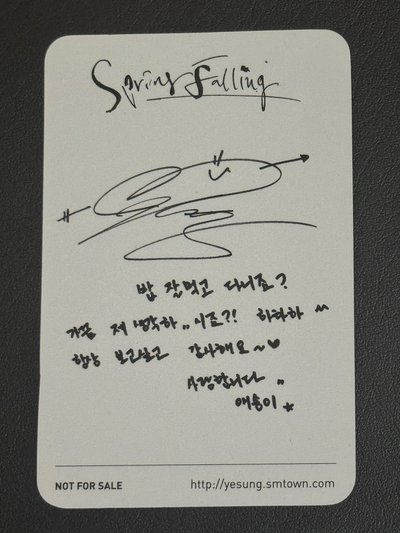 Spring Falling
밥 잘먹고 다니죠?
가끔 제 생각하..시죠?! 하하하 ^^
항상 보고싶고 감사해요~♥
사랑합니다..
예성이★
NOT FOR SALE
http://yesung.smtown.com